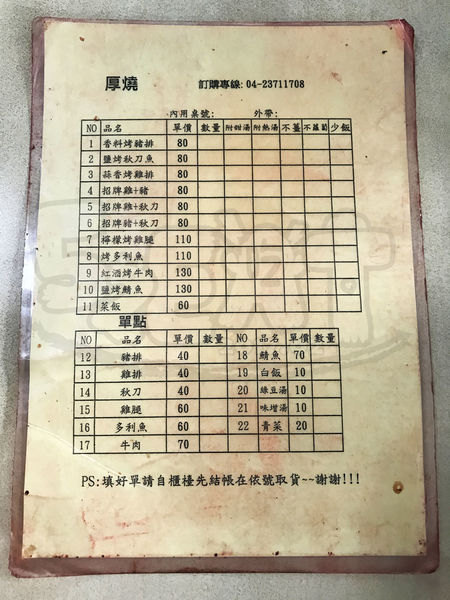 厚燒 訂購專線: 04-23711708
內用桌號: 外帶:
NO 品名 單價 數量 附甜湯 附熱湯 不薑 不蘿蔔 少飯
1 香料烤豬排 80
2 鹽烤秋刀魚 80
3 蒜香烤雞排 80
4 招牌雞+豬 80
5 招牌雞+秋刀 80
6 招牌豬+秋刀 80
7 檸檬烤雞腿 110
8 烤多利魚 110
9 紅酒烤牛肉 130
10 鹽烤鯖魚 130
11 菜飯 60
單點
NO 品名 單價 數量 NO 品名 單價 數量
12 豬排 40 18 鯖魚 70
13 雞排 40 19 白飯 10
14 秋刀 40 20 綠豆湯 10
15 雞腿 60 21 味增湯 10
16 多利魚 60 22 青菜 20
17 牛肉 70
PS:填好單請自櫃檯先結帳在依號取貨~~謝謝!!!